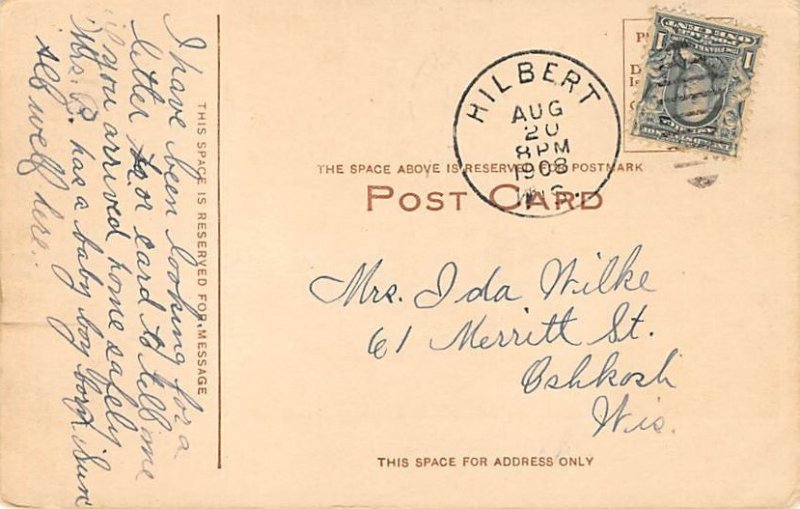 I have been looking for a
letter or card to tell me
if you arrived home safely
Mrs. B. has a baby boy born Sun
all well here.
THIS SPACE IS RESERVED FOR MESSAGE
HILBERT
AUG
20
8 PM
1908
WIS.
THE SPACE ABOVE IS RESERVED FOR POSTMARK
POST CARD
Mrs. Ida Wilke
61 Merritt St.
Oshkosh
Wis.
THIS SPACE FOR ADDRESS ONLY